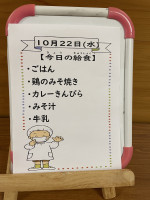 10月22日(水)
【今日の給食】
・ごはん
・鶏のみそ焼き
・カレーきんぴら
・みそ汁
・牛乳